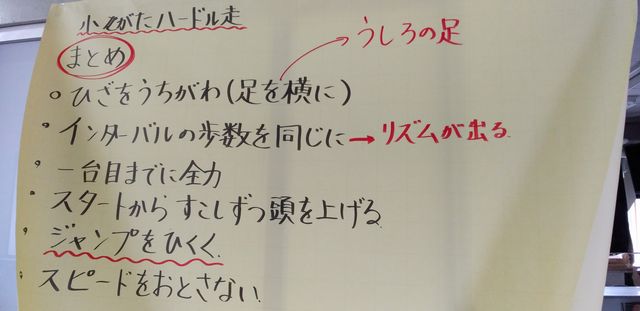 小がたハードル走
まとめ
うしろの足
○ひざをうちがわ(足を横に)
・インターバルの歩数を同じに→リズムが出る
・一台目までに全力
・スタートからすこしずつ頭を上げる
・ジャンプをひくく
・スピードをおとさない